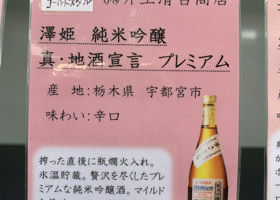 ゴールドメダル
㈱井上清吉商店
澤姫 純米吟醸
真・地酒宣言 プレミアム
産 地:栃木県 宇都宮市
味わい:辛口
搾った直後に瓶燗火入れ。
氷温貯蔵。贅沢を尽くした
プレミアムな純米吟醸酒。マイルド